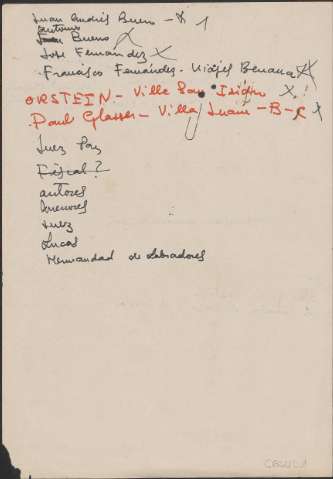 Juan Andrés Bueno - X 1
Antonio
Bueno X
José Fernández X
Francisco Fernández - Viajes Benana X
ORSTEIN - Ville San Isidro X
Paul Glasser - Villa Juani - B - C X
Juez Paz
Fiscal?
autores
menores
Juez
Lucas
Hermandad de Labradores